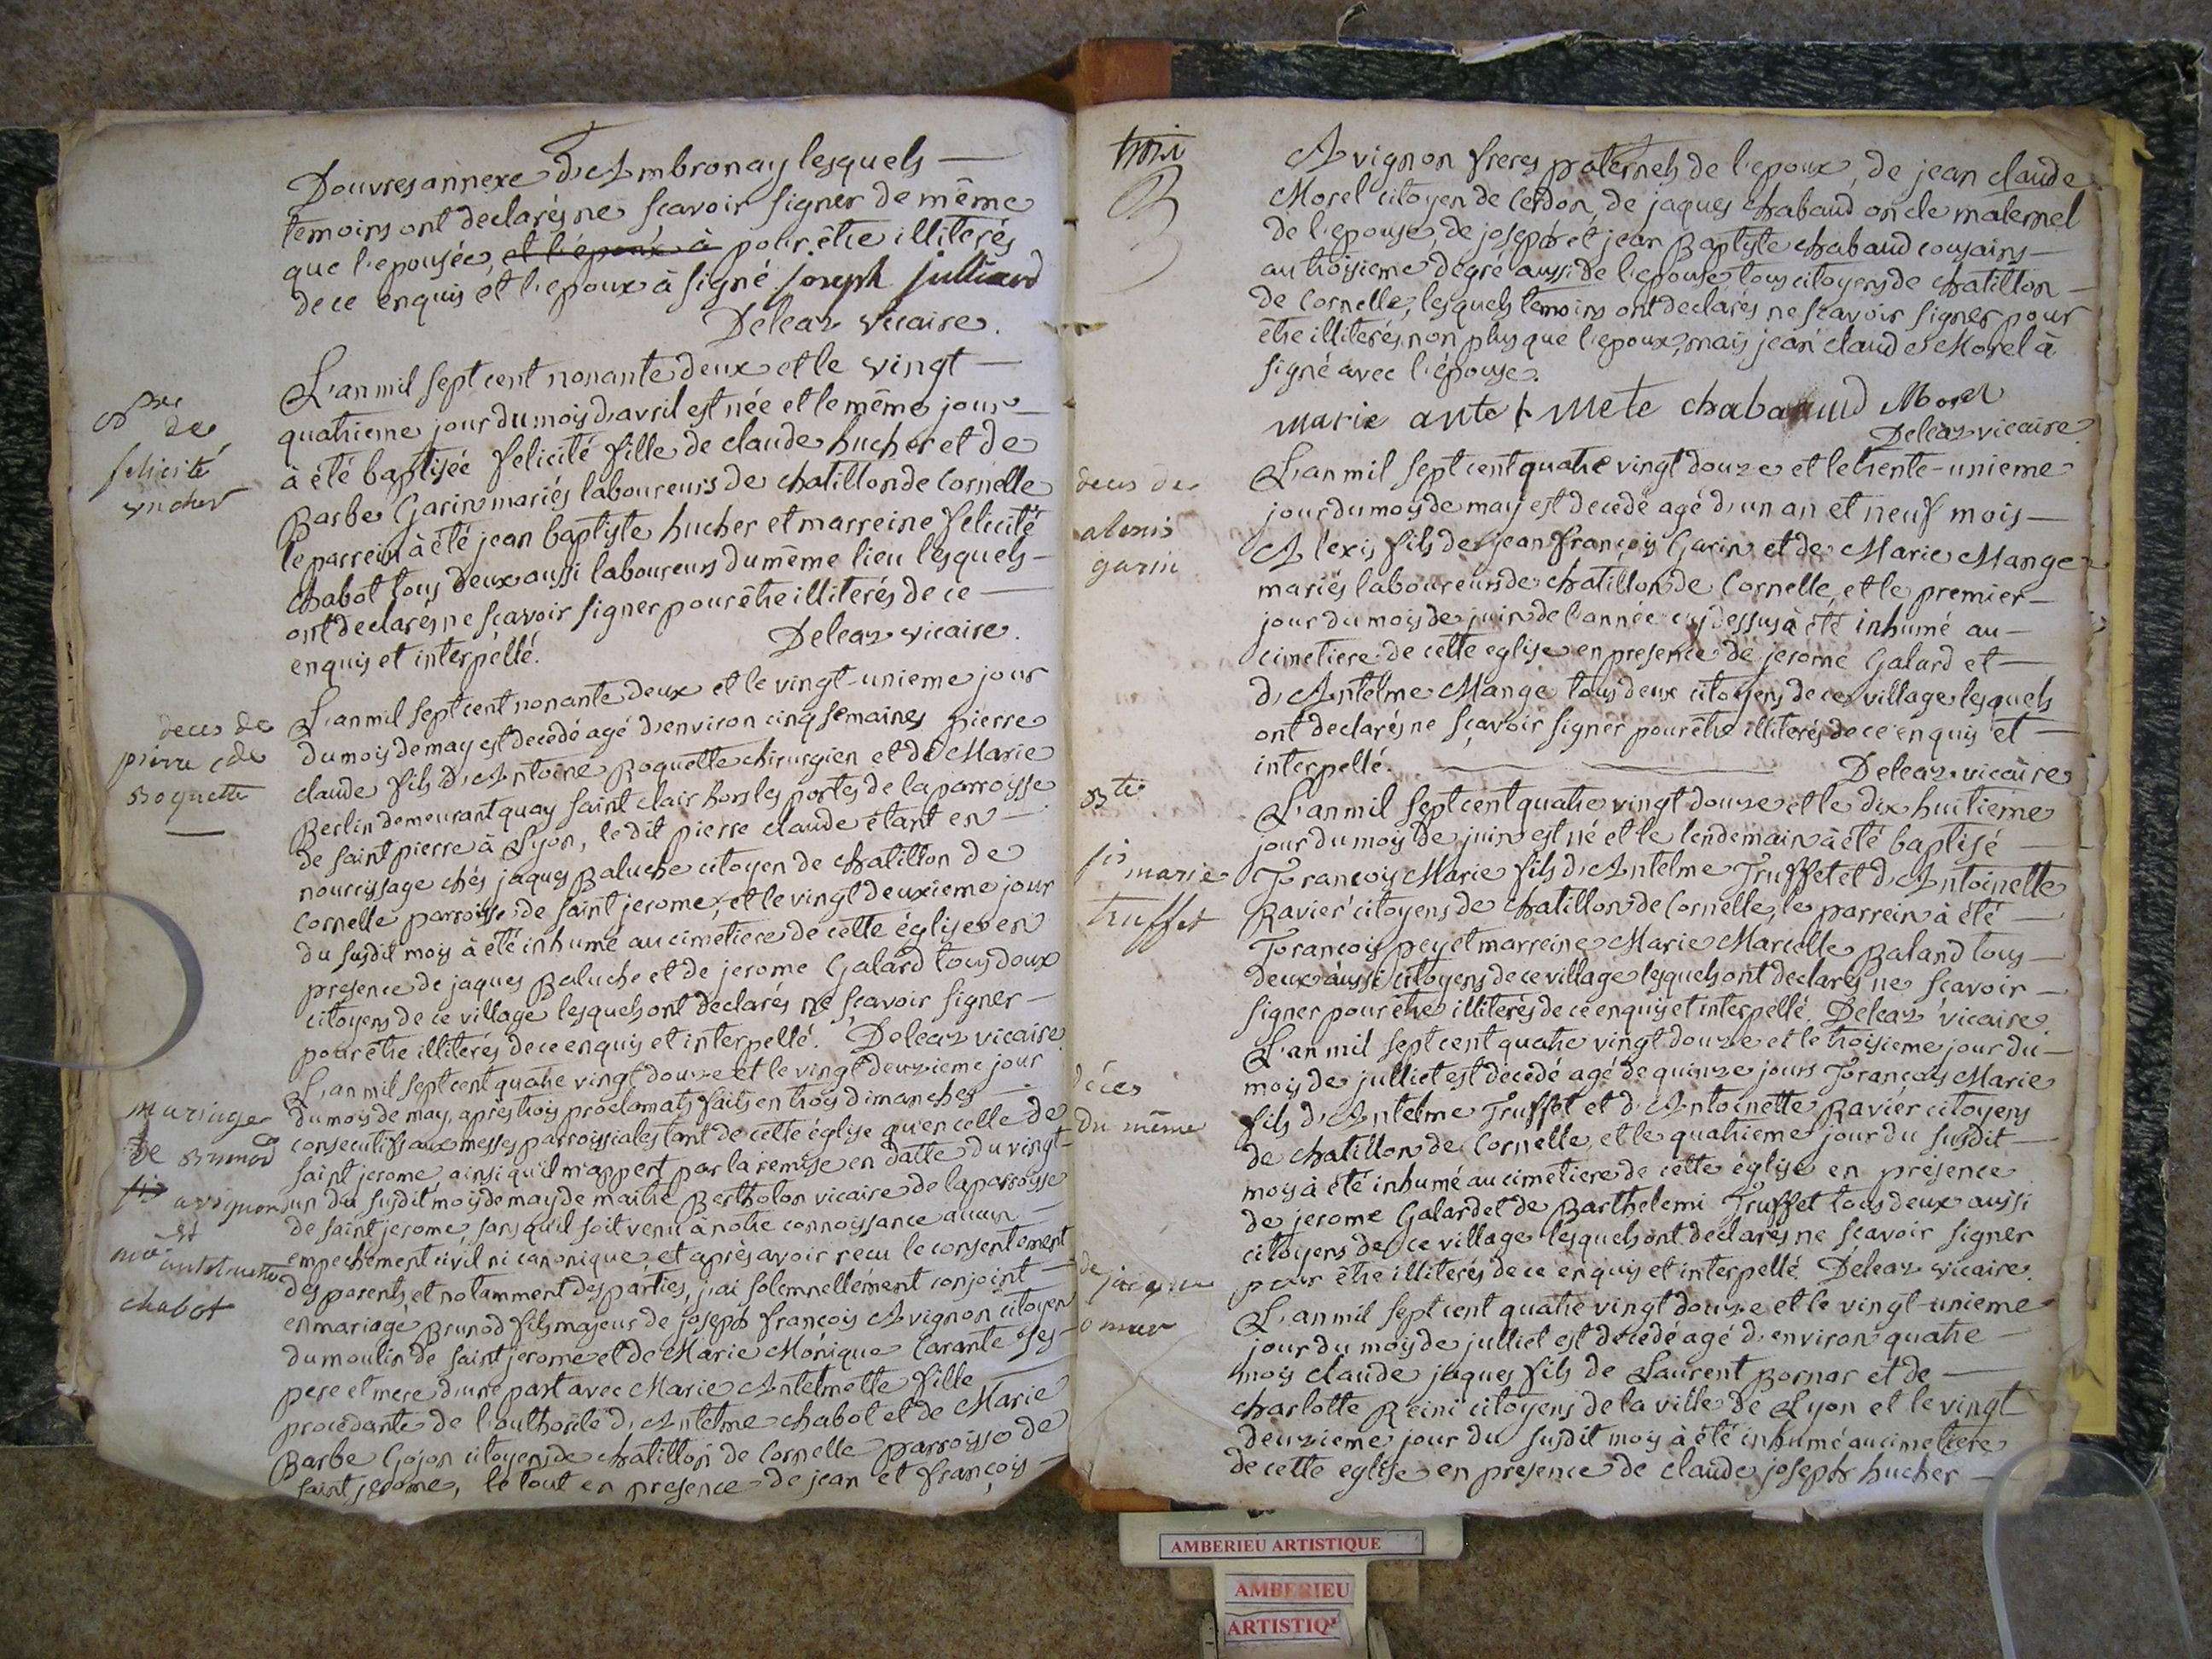 Douvres annexe d'Ambronay lesquels
temoins ont declarés ne sçavoir signer de même
que l'epousée, et l'époux à pour être illiterés
de ce enquis et l'epoux à signé joseph julliard
Deleaz vicaire.
Bme
de
felicité
hucher
L'an mil sept cent nonante deux et le vingt
quatrieme jour du mois d'avril est née et le même jour
à été baptisée felicité fille de claude hucher et de
Barbe Garin mariés laboureurs de chatillon de Cornelle
le parrein à été jean baptiste hucher et marreine felicité
chabot tous deux aussi laboureurs du même lieu lesquels
ont declarés ne scavoir signer pour être illiterés de ce
enquis et interpellé. Deleaz vicaire.
deces de
pierre cde
Roquette
L'an mil sept cent nonante deux et le vingt-unieme jour
du mois de may est decédé agé d'environ cinq semaines pierre
claude fils d'Antoine Roquette chirurgien et de Marie
Berlin demeurant quay saint clair hors les portes de la parroisse
de saint pierre à Lyon, le dit pierre claude étant en
nourrissage chés jaques Baluche citoyen de chatillon de
Cornelle parroisse de saint jerome, et le vingt deuxieme jour
du susdit mois à été inhumé au cimetiere de cette église en
presence de jaques Baluche et de jerome Galard tous deux
citoyens de ce village lesquels ont declarés ne sçavoir signer
pour être illiterés de ce enquis et interpellé. Deleaz vicaire
mariage
de Brunod
avignon
et
mie antelmette
chabot
L'an mil sept cent quatre vingt douze et le vingt deuzieme jour
du mois de may, après trois proclamats faits en trois dimanches
consecutifs aux messes parroissiales tant de cette église qu'en celle de
saint jerome, ainsi qu'il m'appert par la remise en datte du vingt-
un du susdit mois de may de maitre Bertholon vicaire de la parroisse
de saint jerome, sans qu'il soit venu à notre connoissance aucun
empechement civil ni canonique et après avoir recu le consentement
des parents, et notamment des parties, j'ai solemnellement conjoint
en mariage Brunod fils majeur de joseph françois Avignon citoyen
du moulin de saint jerome et de Marie Mónique Carante ses
pere et mere d'une part avec Marie Antelmette fille
procédante de l'authorité d'Antelme chabot et de Marie
Barbe Gojon citoyens de chatillon de Cornelle parroisse de
saint jerome, le tout en presence de jean et françois
Avignon freres paternels de l'epoux, de jean claude
Morel citoyen de Cerdon, de jaques chabaud oncle maternel
de l'epouse, de joseph et jean Baptiste chabaud cousains
au troisieme degré aussi de l'epouse, tous citoyens de chatillon
de Cornelle, lesquels temoins ont declarés ne scavoir signer pour
être illiterés, non plus que l'epoux, mais jean claude Morel à
signé avec l'épouse.
marie ante mete chabaud Morel
Deleaz vicaire
deces de
alexis
garin
L'an mil sept cent quatre vingt douze et le trente-unieme
jour du mois de may est decedé agé d'un an et neuf mois
Alexis fils de jean françois Garin et de Marie Mange
mariés laboureurs de chatillon de Cornelle, et le premier
jour du mois de juin de l'année cy dessus à été inhumé au
cimetiere de cette eglise en presence de jerome Galard et
d'Antelme Mange tous deux citoyens de ce village lesquels
ont declarés ne sçavoir signer pour être illiterés de ce enquis et
interpellé. Deleaz vicaire
Bte
fis marie
truffet
L'an mil sept cent quatre vingt douze et le dix huitieme
jour du mois de juin est né et le lendemain à été baptisé
François Marie fils d'Antelme Truffet et d'Antoinette
Ravier citoyens de chatillon de Cornelle, le parrein à été
François pey et marreine Marie Marcelle Baland tous
deux aussi citoyens de ce village lesquels ont declarés ne scavoir
signer pour être illiterés de ce enquis et interpellé. Deleaz vicaire.
déces
du même
L'an mil sept cent quatre vingt douze et le troisieme jour du
mois de julliet est decedé agé de quinze jours François Marie
fils d'Antelme Truffet et d'Antoinette Ravier citoyens
de chatillon de Cornelle, et le quatrieme jour du susdit
mois à été inhumé au cimetiere de cette église en présence
de jerome Galard et de Barthelemi Truffet tous deux aussi
citoyens de ce village lesquels ont declarés ne scavoir signer
pour être illiterés de ce enquis et interpellé. Deleaz vicaire.
de jacque
L'an mil sept cent quatre vingt douze et le vingt-unieme
jour du mois de julliet est decedé agé d'environ quatre
mois claude jaques fils de Laurent Bornar et de
charlotte Reini citoyens de la ville de Lyon et le vingt
deuzieme jour du susdit mois à été inhumé au cimetiere
de cette eglise en presence de claude joseph hucher
AMBERIEU ARTISTIQUE
AMBERIEU
ARTISTIQ